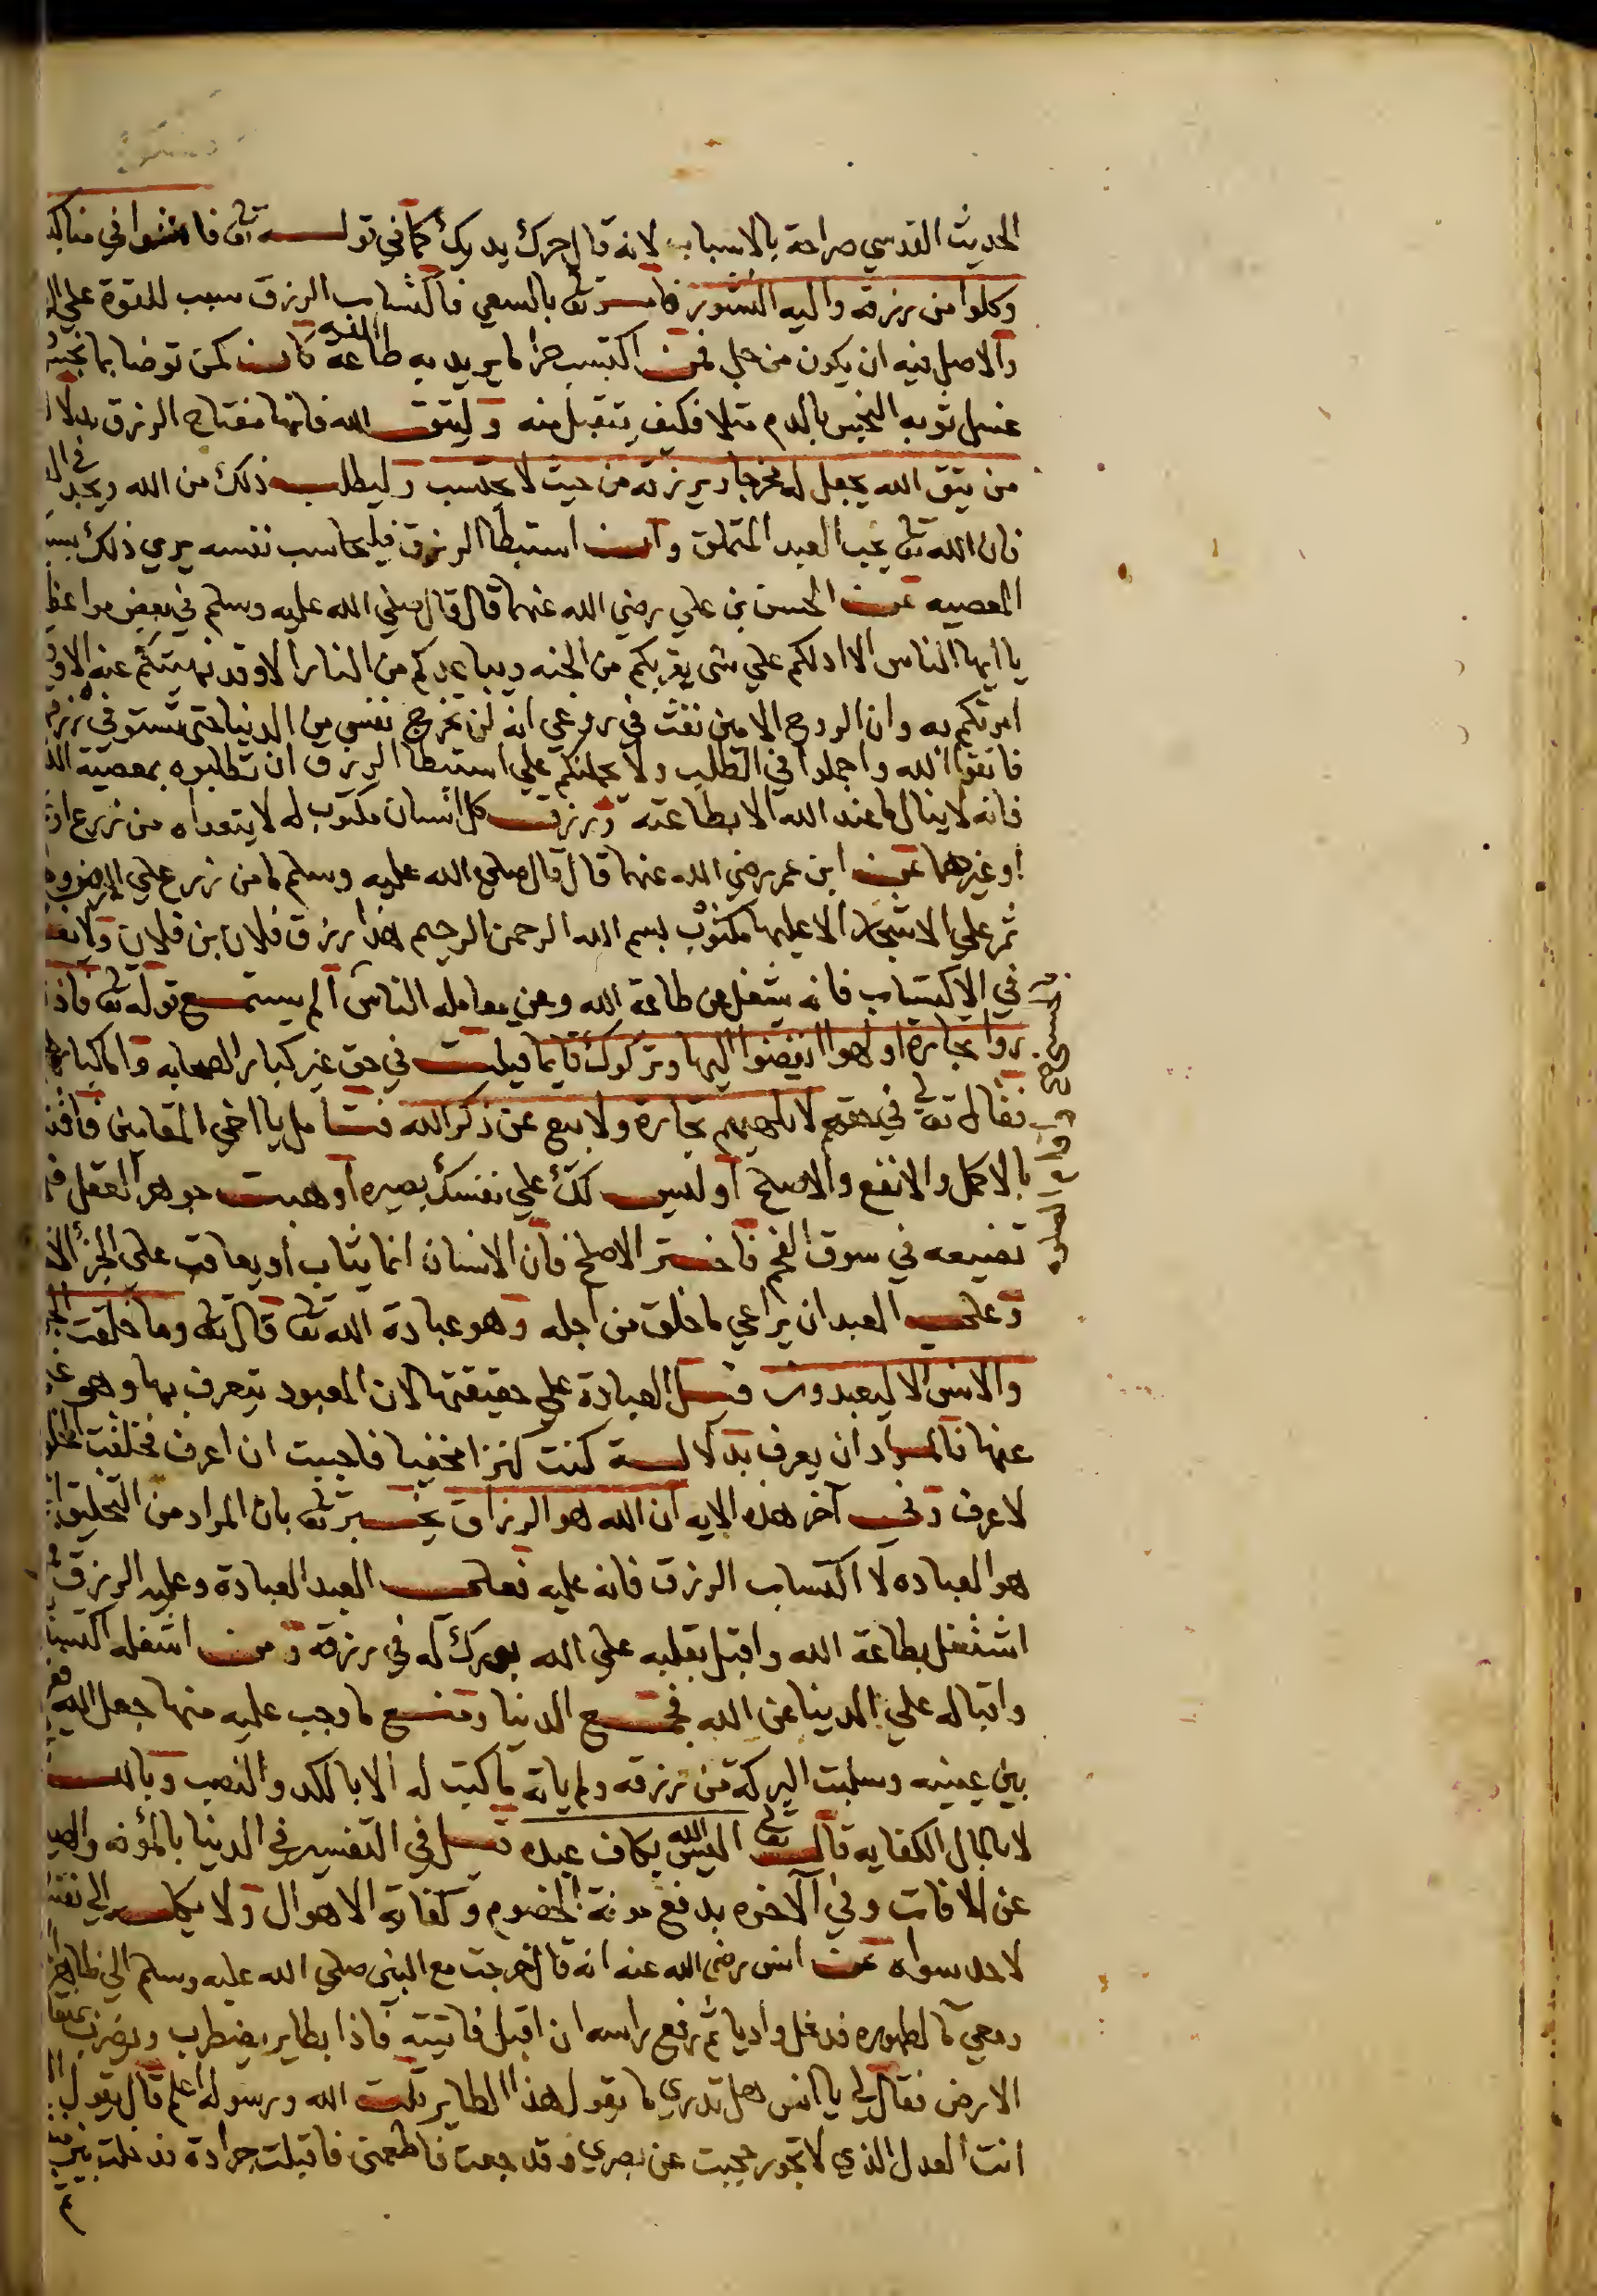 الحديث القدسي صراحة بالاسباب لانه قال حرك يدك كما في قوله تعالى فامشوا في مناكبها
وكلوا من رزقه واليه النشور فامر تعالى بالسعي فاكتساب الرزق سبب للقوة على
والاصل فيه ان يكون من حل فمن اكتسب حراما يريد به طاعة الله كان كمن توضا بما نجس
غسل ثوبه النجس بالدم مثلا فكيف يتقبل منه وليتق الله فانها مفتاح الرزق بدلالة
من يتق الله يجعل له مخرجا ويرزقه من حيث لا يحتسب وليطلب ذلك من الله ويجد في
فان الله تعالى يحب العبد المتملق وان استبطا الرزق فليحاسب نفسه يري ذلك بسبب
المعصيه عن الحسن بن علي رضي الله عنهما قال قال صلى الله عليه وسلم في بعض مواعظه
يا ايها الناس الا ادلكم علي شي يقربكم من الجنه ويباعدكم من النار الا وقد نهيتكم عنه الا وقد
امرتكم به وان الروح الامين نفث في روعي انه لن تخرج نفس من الدنيا حتى تستوفي رزقها
فاتقوا الله واجملوا في الطلب ولا يحملنكم علي استبطا الرزق ان تطلبوه بمعصية الله
فانه لا ينال ما عند الله الا بطاعته ورزق كل انسان مكتوب له لا يتعداه من زرع او
او غيرهما عن ابن عمر رضي الله عنهما قال قال صلى الله عليه وسلم ما من زرع علي الارض ولا
ثمر علي الاشجار الا عليها مكتوب بسم الله الرحمن الرحيم هذا رزق فلان بن فلان ولا
في الاكتساب فانه يشغل عن طاعة الله وعن معامله الناس الم يستمع قوله تعالى واذا
روا تجارة او لهوا انفضوا اليها وتركوك قايما قيلت في حق غير كبار الصحابه واما كبارهم
فقال تعالى في حقهم لا تلهيهم تجارة ولا بيع عن ذكر الله فتامل يا اخي المقامين
بالاكمل والانفع والاصلح او ليس لك علي نفسك بصيره او هبت جوهر العقل
تضيعه في سوق الفحم فاختر الاصلح فان الانسان انما يثاب او يعاقب على الجزء
وعلى العبد ان يراعي ما خلق من اجله وهو عبادة الله تعالى قال تعالى وما خلقت الجن
والانس الا ليعبدون قيل العبادة علي حقيقتها لان المعبود يتعرف بها وهو غني
عنها فالمراد ان يعرف بدلالة كنت كنزا مخفيا فاحببت ان اعرف فخلقت الخلق
لاعرف وفي آخر هذه الايه ان الله هو الرزاق يخبر تعالى بان المراد من التخليق
هو العباده لا اكتساب الرزق فانه عليه فعلى العبد العبادة وعليه الرزق
اشتغل بطاعة الله واقبل بقلبه على الله بورك له في رزقه ومن اشغله اكتساب
واقباله علي الدنيا عن الله فجمع الدنيا ومنع ما وجب عليه منها جعل الله
بين عينيه وسلبت البركة من رزقه ولم ياته ما كتب له الا بالكد والنصب وبالله
لا بالمال الكفايه قال تعالى اليس الله بكاف عبده قيل في التفسير في الدنيا بالمؤنه
عن الافات وفي الاخره بدفع مونة الخصوم وكفاية الاهوال ولا يكله الي نفسه
لاحد سواه عن انس رضي الله عنه انه قال خرجت مع النبي صلى الله عليه وسلم الي
ومعي ما لطهوره فدخل واديا ثم رفع راسه ان اقبل فاتيته فاذا بطاير يضطرب ويضرب
الارض فقال لي يا انس هل تدري ما يقول هذا الطاير قلت الله ورسوله اعلم قال يقول
انت العدل الذي لا تجور حجبت عن بصري وقد جعت فاطعمني فاقبلت جرادة فدخلت